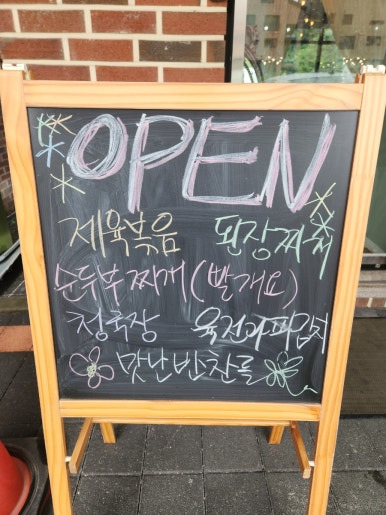 OPEN
제육볶음 된장찌개
순두부찌개(빨개요)
청국장 육전과파김치
맛난반찬들